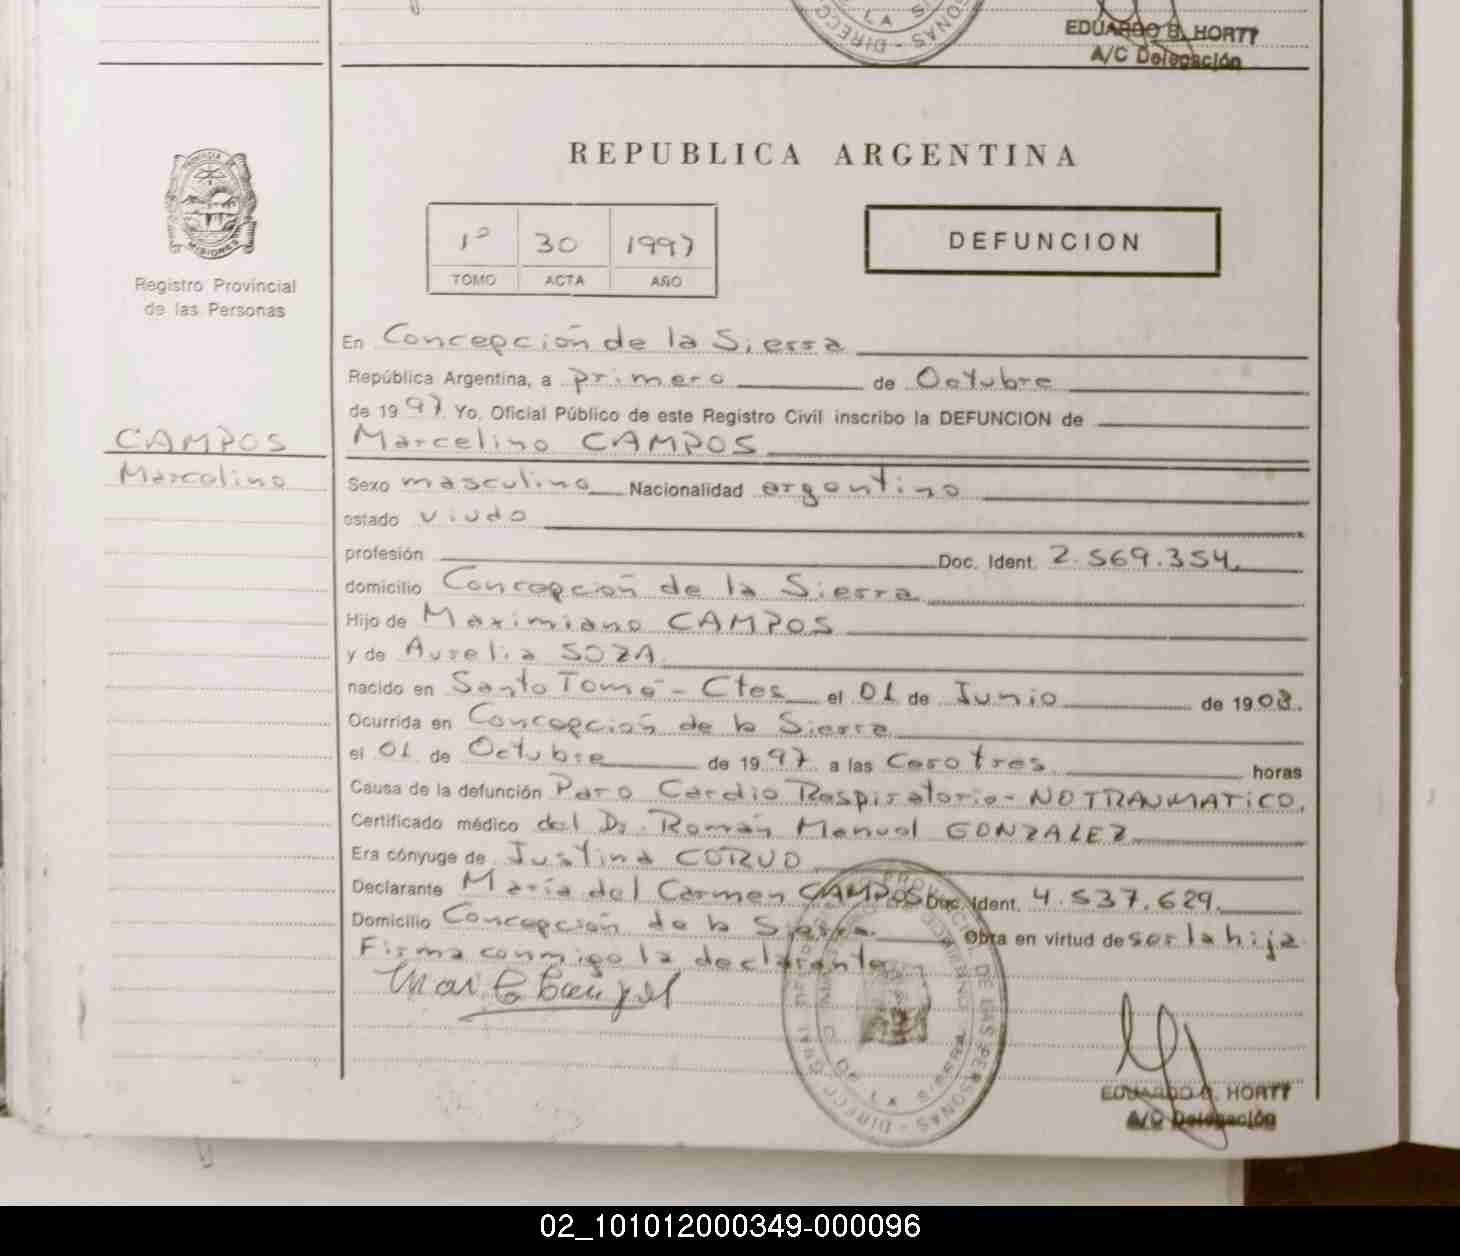 EDUARDO B. HORTT
A/C Delegación
REPUBLICA ARGENTINA
1º 30 1997
TOMO ACTA AÑO
DEFUNCION
Registro Provincial
de las Personas
En Concepción de la Sierra
República Argentina, a primero de Octubre
de 1997. Yo, Oficial Público de este Registro Civil inscribo la DEFUNCION de
CAMPOS
Marcelino
Marcelino CAMPOS
Sexo masculino Nacionalidad argentino
estado viudo
profesión Doc. Ident. 2.569.354.
domicilio Concepción de la Sierra
Hijo de Maximiano CAMPOS
y de Aurelia SOZA.
nacido en Santo Tomé - Ctes el 01 de Junio de 1908.
Ocurrida en Concepción de la Sierra
el 01 de Octubre de 1997. a las Cero tres horas
Causa de la defunción Paro Cardio Respiratorio - NO TRAUMATICO.
Certificado médico del Dr. Román Manuel GONZALEZ
Era cónyuge de Justina CORVO
Declarante María del Carmen CAMPOS Doc. Ident. 4.537.629.
Domicilio Concepción de la Sierra Obra en virtud de ser la hija
Firma conmigo la declarante
EDUARDO B. HORTT
A/C Delegación
02_101012000349-000096